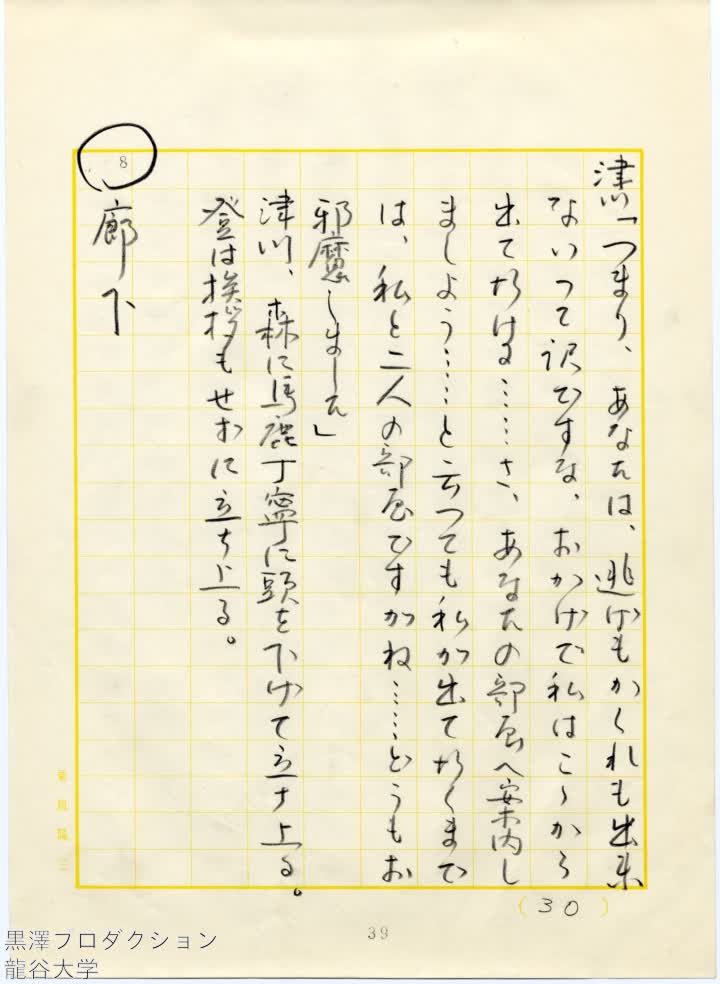 津川「つまり、あなたは、逃げもかくれも出来
ないって訳ですな、おかげで私はこゝから
出て行ける……さ、あなたの部屋へ案内し
ましよう……と云つても私が出て行くまで
は、私と二人の部屋ですがね……どうもお
邪魔しました」
津川、森に馬鹿丁寧に頭を下げて立ち上る。
登は挨拶もせずに立ち上る。
8
廊下
(30)
39
黒澤プロダクション
龍谷大学